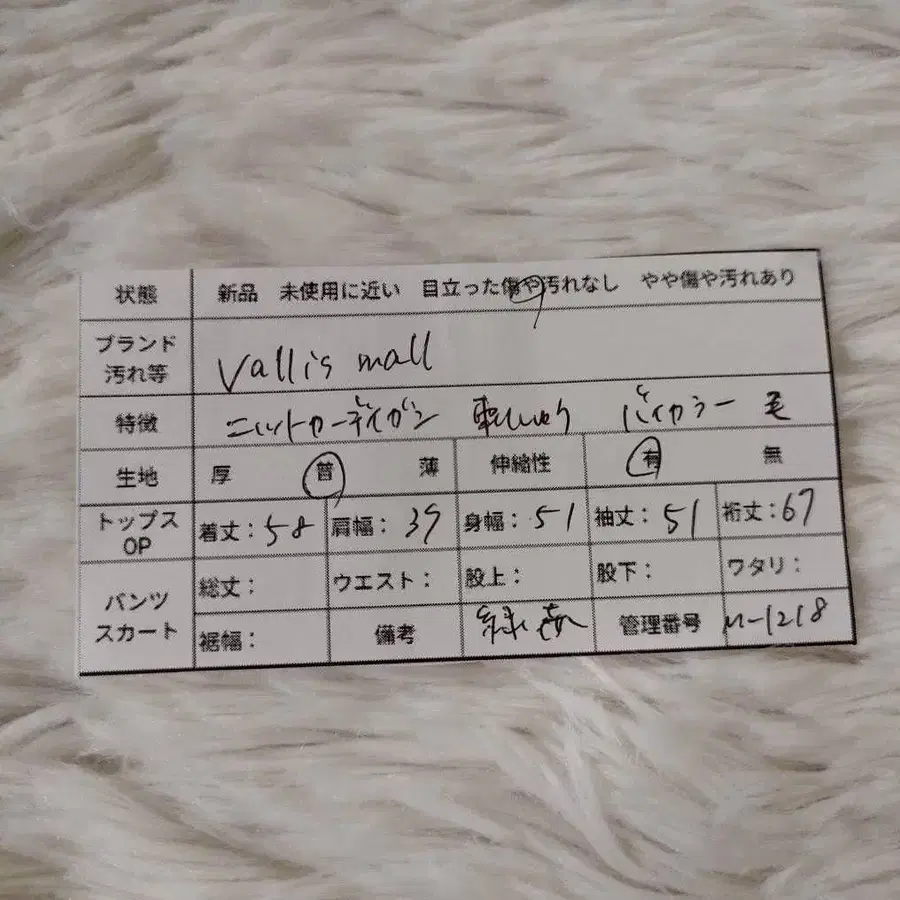 状態 新品 未使用に近い 目立った傷や汚れなし やや傷や汚れあり
ブランド
汚れ等 Vallis mall
特徴 ニットカーディガン 刺しゅう バイカラー 毛
生地 厚 普 薄 伸縮性 有 無
トップス
OP 着丈：58 肩幅：39 身幅：51 袖丈：51 裄丈：67
パンツ
スカート 総丈： ウエスト： 股上： 股下： ワタリ：
裾幅： 備考 緑 管理番号 M-1218